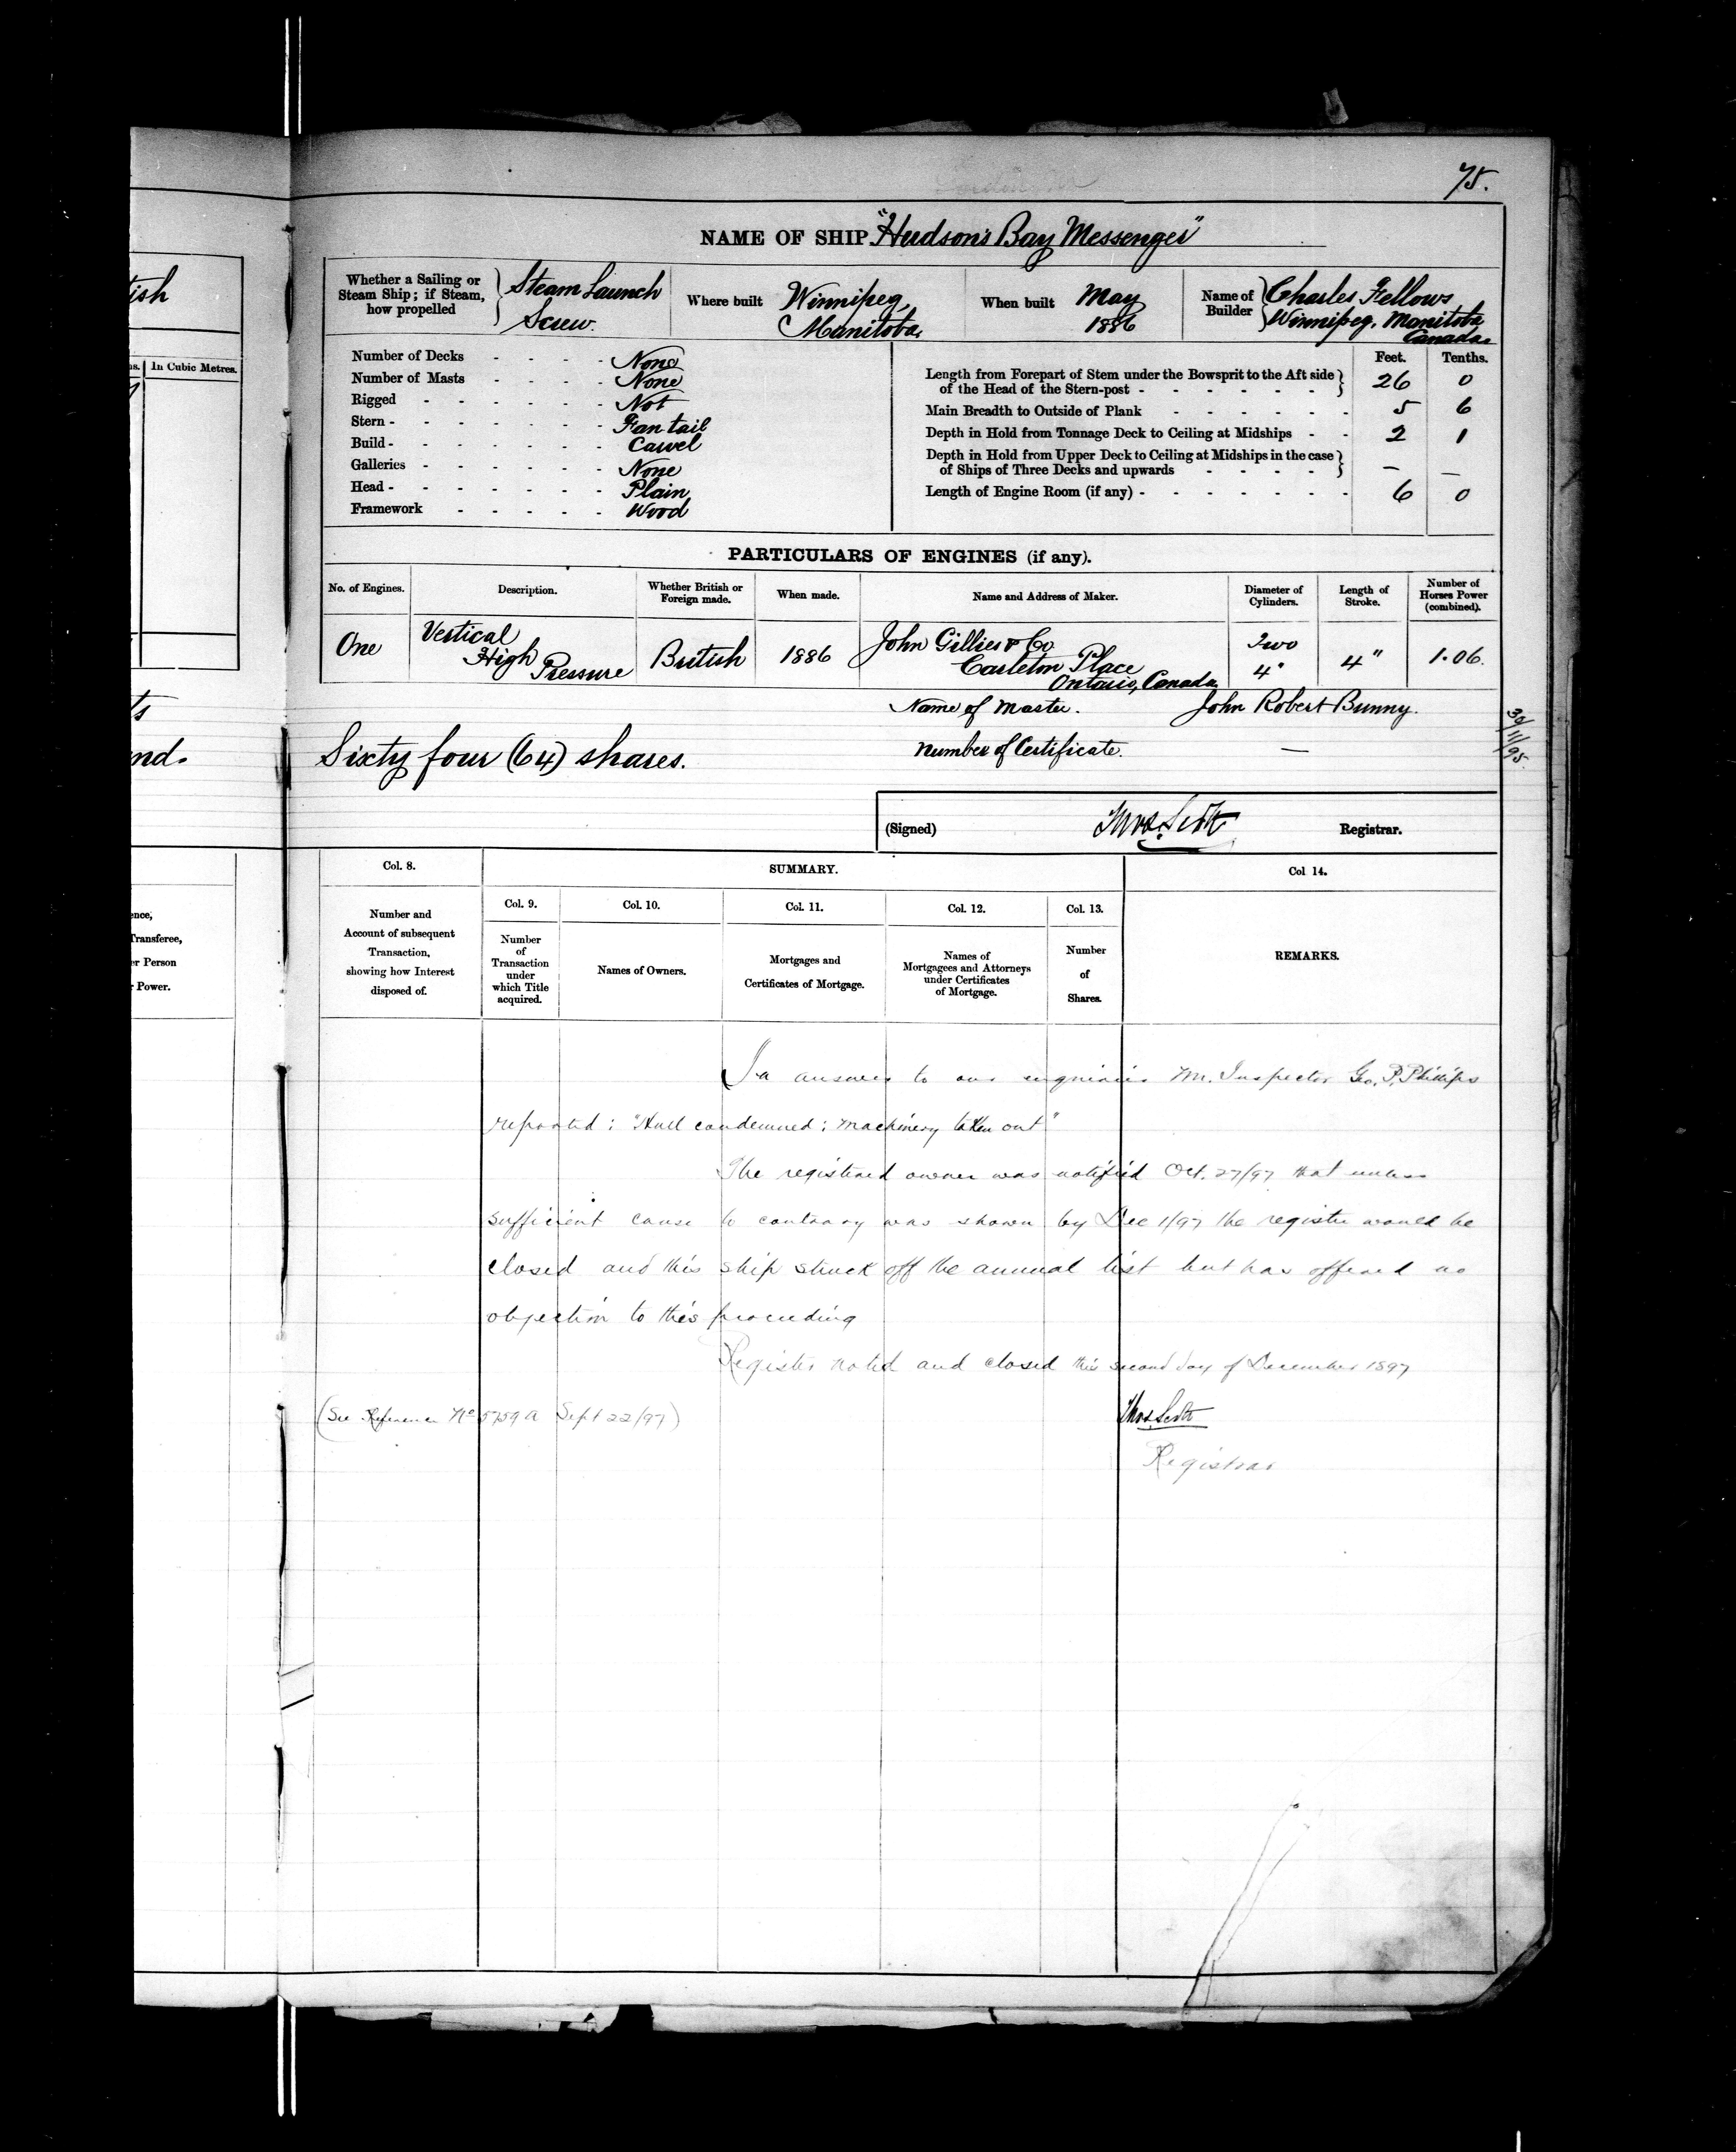 75.
NAME OF SHIP "Hudson's Bay Messenger"
Whether a Sailing or Steam Ship; if Steam, how propelled } Steam Launch Screw.
Where built Winnipeg, Manitoba.
When built May 1886
Name of Builder } Charles Fellows, Winnipeg, Manitoba Canada.
Number of Decks - - - - None
Number of Masts - - - - None
Rigged - - - - - - Not
Stern - - - - - - Fan tail
Build - - - - - - Carvel
Galleries - - - - - - None
Head - - - - - - Plain
Framework - - - - - Wood
Feet. Tenths.
Length from Forepart of Stem under the Bowsprit to the Aft side of the Head of the Stern-post - - - - - } 26 0
Main Breadth to Outside of Plank - - - - - 5 6
Depth in Hold from Tonnage Deck to Ceiling at Midships - - 2 1
Depth in Hold from Upper Deck to Ceiling at Midships in the case of Ships of Three Decks and upwards - - - - } — —
Length of Engine Room (if any) - - - - - - 6 0
PARTICULARS OF ENGINES (if any).
No. of Engines. Description. Whether British or Foreign made. When made. Name and Address of Maker. Diameter of Cylinders. Length of Stroke. Number of Horses Power (combined).
One Vertical High Pressure British 1886 John Gillies & Co Carleton Place Ontario, Canada Two 4" 4" 1.06.
Name of Master. John Robert Bunny.
Number of Certificate. —
30/11/95.
Sixty four (64) shares.
(Signed) Thos. Scott Registrar.
ish
ns. In Cubic Metres.
ts
nd.
ence,
Transferee,
er Person
r Power.
Col. 8. SUMMARY. Col 14.
Number and Account of subsequent Transaction, showing how Interest disposed of.
Col. 9. Number of Transaction under which Title acquired.
Col. 10. Names of Owners.
Col. 11. Mortgages and Certificates of Mortgage.
Col. 12. Names of Mortgagees and Attorneys under Certificates of Mortgage.
Col. 13. Number of Shares.
REMARKS.
In answer to our enquiries Mr. Inspector Geo. P. Phillips
reported: "Hull condemned; machinery taken out"
The registered owner was notified Oct. 27/97 that unless
sufficient cause to contrary was shown by Dec 1/97 the register would be
closed and this ship struck off the annual list but has offered no
objection to this proceeding
Register noted and closed this second day of December 1897
(See Reference No 5759 A Sept 22/97)
Thos. Scott
Registrar